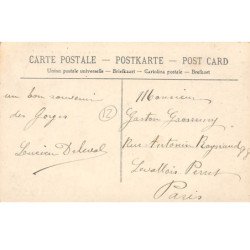 CARTE POSTALE – POSTKARTE – POST CARD
Union postale universelle – Briefkaart – Cartolina postale – Brefkort
un bon souvenir
des Gorges
Lucien Deleval
12
Monsieur
Gaston
Rue Antonin Raynaud
Levallois Perret
Paris